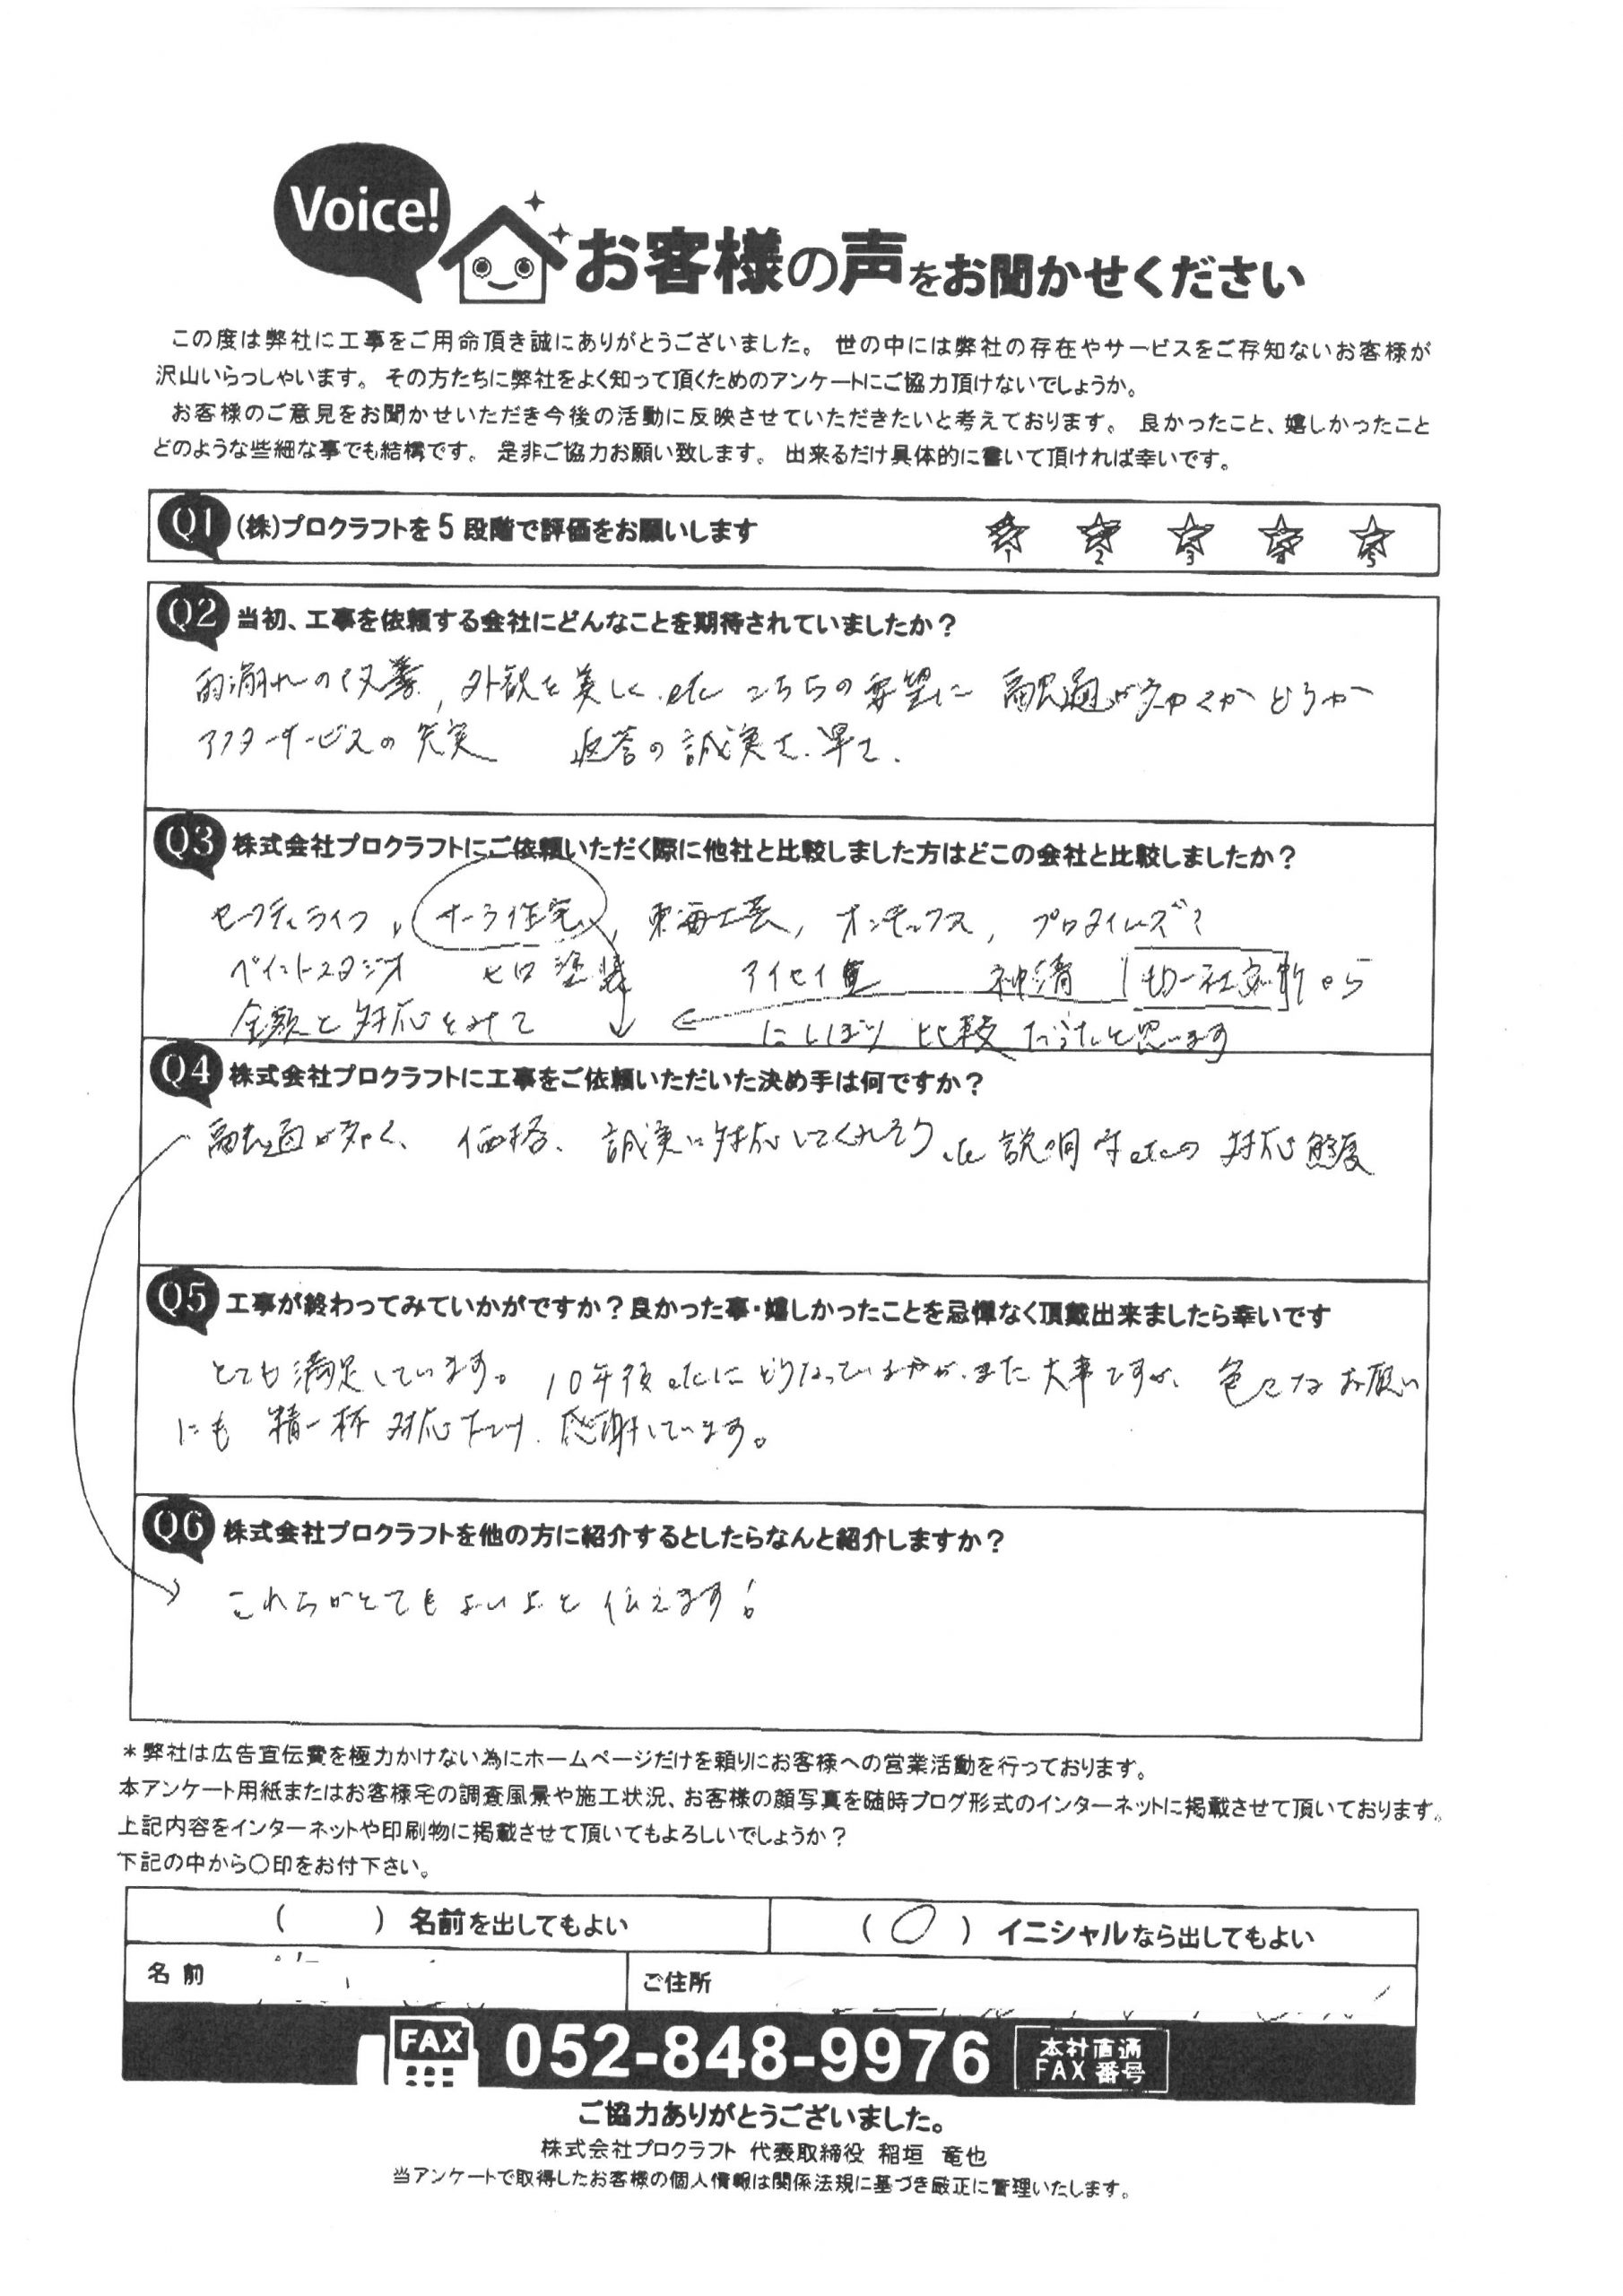 Voice!
お客様の声をお聞かせください
この度は弊社に工事をご用命頂き誠にありがとうございました。 世の中には弊社の存在やサービスをご存知ないお客様が
沢山いらっしゃいます。 その方たちに弊社をよく知って頂くためのアンケートにご協力頂けないでしょうか。
お客様のご意見をお聞かせいただき今後の活動に反映させていただきたいと考えております。 良かったこと、嬉しかったこと
どのような些細な事でも結構です。 是非ご協力お願い致します。 出来るだけ具体的に書いて頂ければ幸いです。
Q1 (株)プロクラフトを5段階で評価をお願いします
1 2 3 4 5
Q2 当初、工事を依頼する会社にどんなことを期待されていましたか？
雨漏れの改善, 外観を美しく.etc こちらの要望に 融通がきくかどうか
アフターサービスの充実 返答の誠実さ.早さ.
Q3 株式会社プロクラフトにご依頼いただく際に他社と比較しました方はどこの会社と比較しましたか？
セーフティライフ, サーラ住宅, 東海工芸, オンテックス, プロタイムズ?
ペイントスタジオ ヒロ塗装 アイセイ 神清 から
金額と対応をみて にしぼり 比較 と思います
Q4 株式会社プロクラフトに工事をご依頼いただいた決め手は何ですか？
融通がきく、 価格、 誠実に対応してくれそう 説明 etcの 対応態度
Q5 工事が終わってみていかがですか？良かった事・嬉しかったことを忌憚なく頂戴出来ましたら幸いです
とても満足しています。 10年後etcにどうなっているかが、また大事ですが、 色々なお願い
にも 精一杯 対応下さり、感謝しています。
Q6 株式会社プロクラフトを他の方に紹介するとしたらなんと紹介しますか？
これらがとてもよいよと 伝えます!
＊弊社は広告宣伝費を極力かけない為にホームページだけを頼りにお客様への営業活動を行っております。
本アンケート用紙またはお客様宅の調査風景や施工状況、お客様の顔写真を随時ブログ形式のインターネットに掲載させて頂いております。
上記内容をインターネットや印刷物に掲載させて頂いてもよろしいでしょうか？
下記の中から〇印をお付下さい。
( ) 名前を出してもよい ( 〇 ) イニシャルなら出してもよい
名前 ご住所
FAX 052-848-9976 本社直通
FAX 番号
ご協力ありがとうございました。
株式会社プロクラフト 代表取締役 稲垣 竜也
当アンケートで取得したお客様の個人情報は関係法規に基づき厳正に管理いたします。